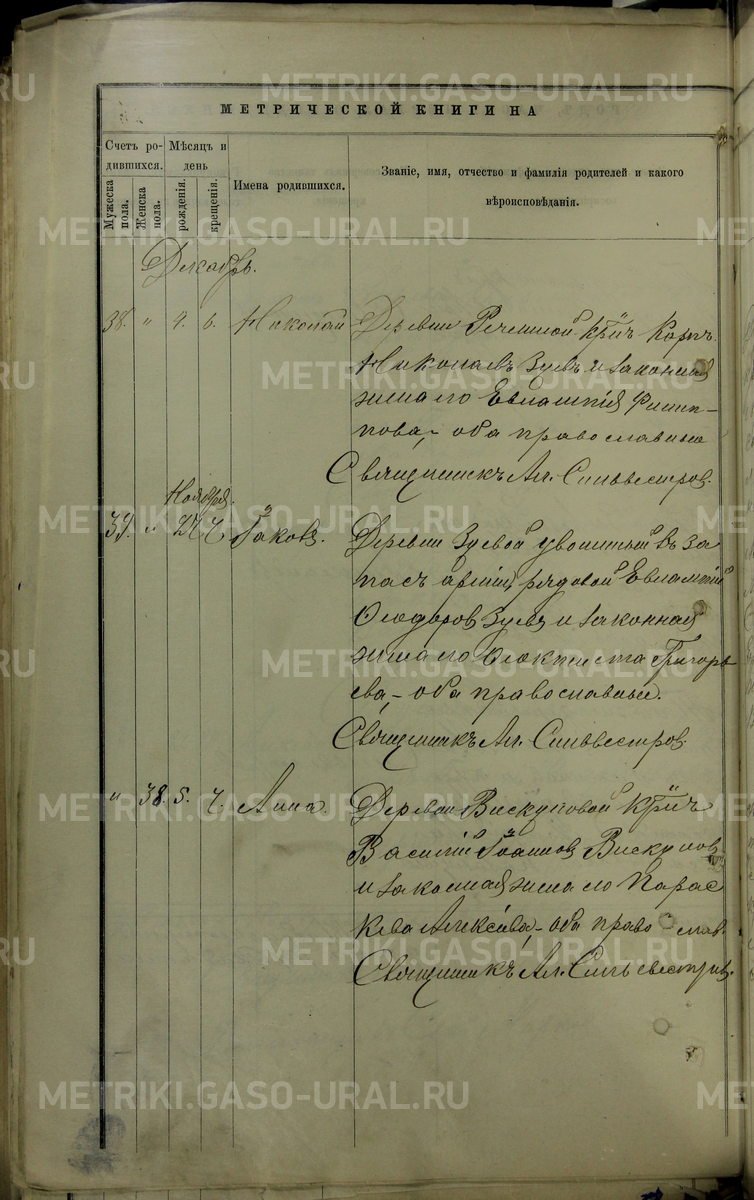 МЕТРИЧЕСКОЙ КНИГИ НА
Счетъ ро-
дившихся.
Мѣсяцъ и
день
Мужеска
пола.
Женска
пола.
рожденія.
крещенія.
Имена родившихся.
Званіе, имя, отчество и фамилія родителей и какого
вѣроисповѣданія.
Декабрь.
38. " 4. 6. Николай Деревни Речкиной кр-нъ Карпъ
Николаевъ Зуевъ и законная
жена его Евлампія Филип-
пова, оба православные
Священникъ Ал. Сильвестров.
Ноября
39. " Іаковъ. Деревни Зуевой уволенный въ за
пасъ арміи рядовой Евлампій
Ѳеодоровъ Зуевъ и законная
жена его Ѳеоктиста Григорь
ева, оба православные.
Священникъ Ал. Сильвестров.
" 38. 5. 7. Анна Деревни Вискуновой кр-нъ
Василій Іоанновъ Вискуновъ
и законная жена его Парас
кева Алексѣева, оба православ.
Священникъ Ал. Сильвестров.
METRIKI.GASO-URAL.RU